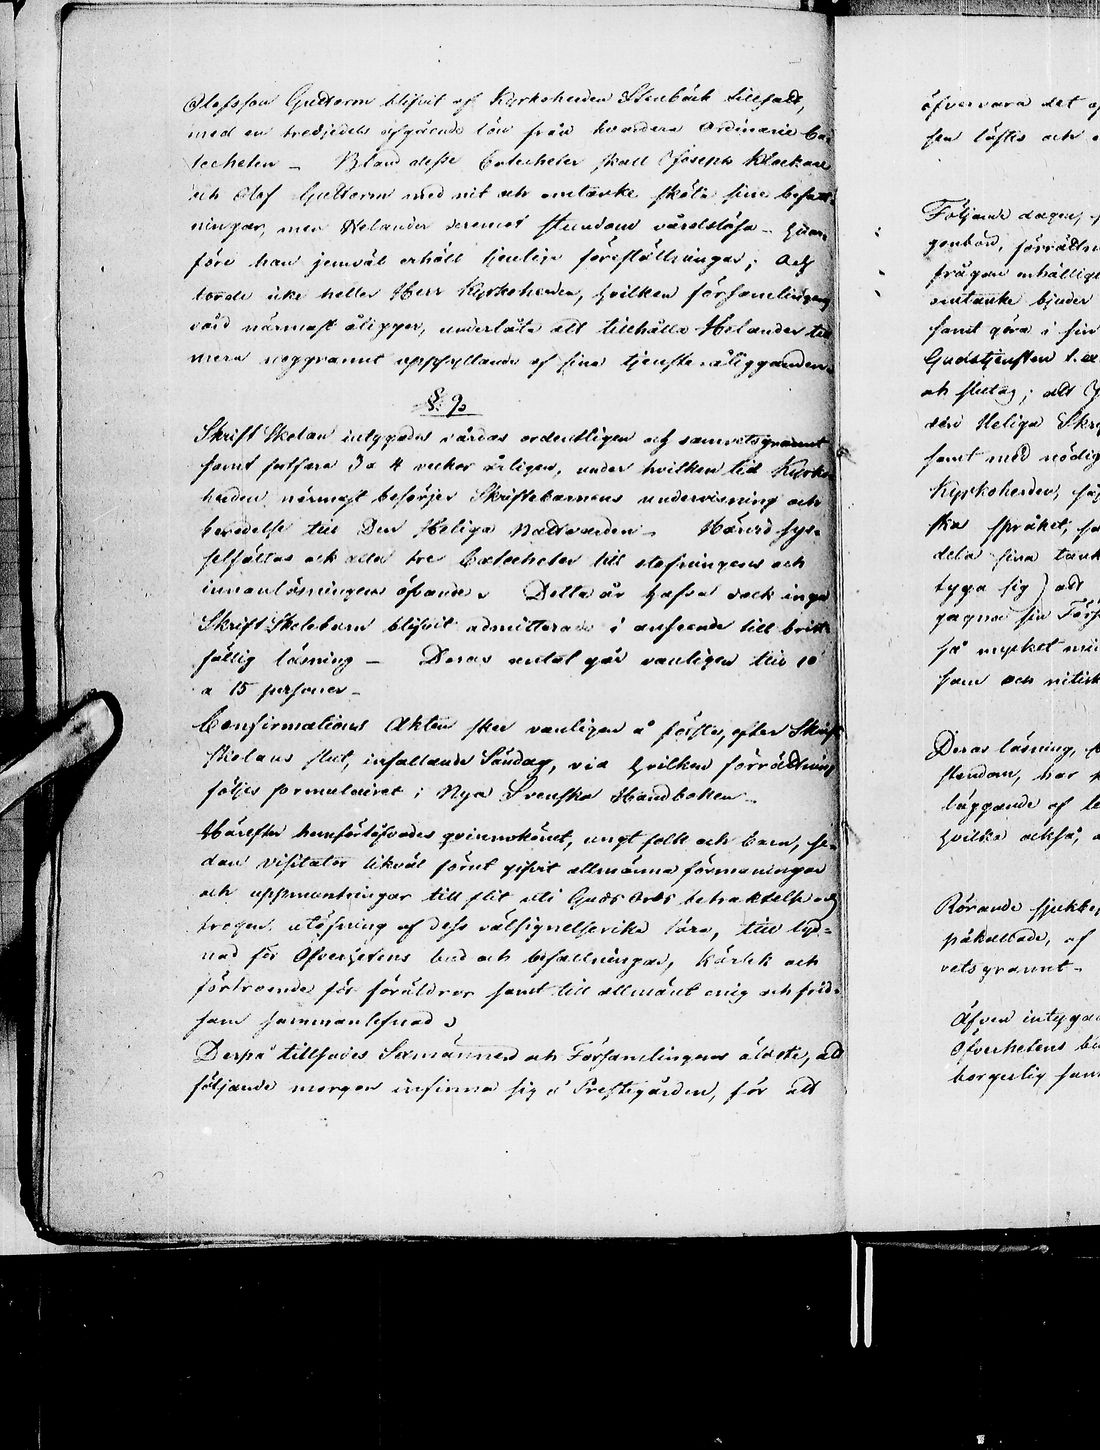 Olofsson Guttorm blifvit af Kyrkoherden Stenbäck tillsatt,
med en tredjedels afgående lön från hvardera Ordinarie Ca-
techeten – Bland desse Catecheter skall Joseph Klockare
och Olof Guttorm med nit och omtanke sköta sine befatt-
ningar, men Helander deremot stundom vårdslösa – hvar-
före han jemväl erhöll tjenlige föreställningar; Och
torde icke heller Herr Kyrkoherden, hvilken församlingens
vård närmast åligger, underlåta att tillhålla Helander till
mera noggrannt uppfyllande af sina tjenste-åligganden.
§ 9
Skrift Skolan intygades vårdas ordentligen och samvetsgrannt
samt fortfara 3 a 4 veckor årligen, under hvilken tid Kyrko-
herden närmast besörjer Skriftebarnens undervisning och
beredelse till Den Heliga Nattvarden – Härvid sys-
selsättas ock alla tre Catecheter till stafningens och
innanläsningens öfvande. Detta år hafva dock inga
Skrift Skolebarn blifvit admitterade i anseende till brist-
fällig läsning – Deras antal går vanligen till 10
a 15 personer –
Confirmations Akten sker vanligen å förste, efter Skrift
Skolans slut, infallande Söndag, vid hvilken förrättning
följes formulairet i Nya Svenska Handboken –
Härefter hemförlofvades qvinnokönet, ungt folk och barn, se-
dan Visitator likväl förut gifvit allmänna förmaningar
och uppmuntringar till flit uti Guds Ords betraktelse och
trogen utöfning af dess välsignelserika lära, till lyd-
nad för Öfverhetens bud och befallningar, kärlek och
förtroende för föräldrar samt till allmänt enig och frid-
sam sammanlefnad.
Derpå tillsades Sexmännen och Församlingens äldste, att
följande morgon infinna sig å Prestegården, för att
öfvervara det
sen läsits och
Följande dagen,
genbörd, förrättn
frågan enhällig
omtanke bjuder
samt göra i sin
Gudstjensten
och slutat; att
den Heliga Skri
samt med nödig
Kyrkoherden,
ska språket,
dela sina tank
tyga sig) att
gagna sin Förs
så mycket
sam och nitisk
Deras läsning,
stundom, har
läggande af
hvilka också,
Rörande sjukbe
påkallade, af
vetsgrannt –
Äfven intygad
Öfverhetens
borgerlig sam